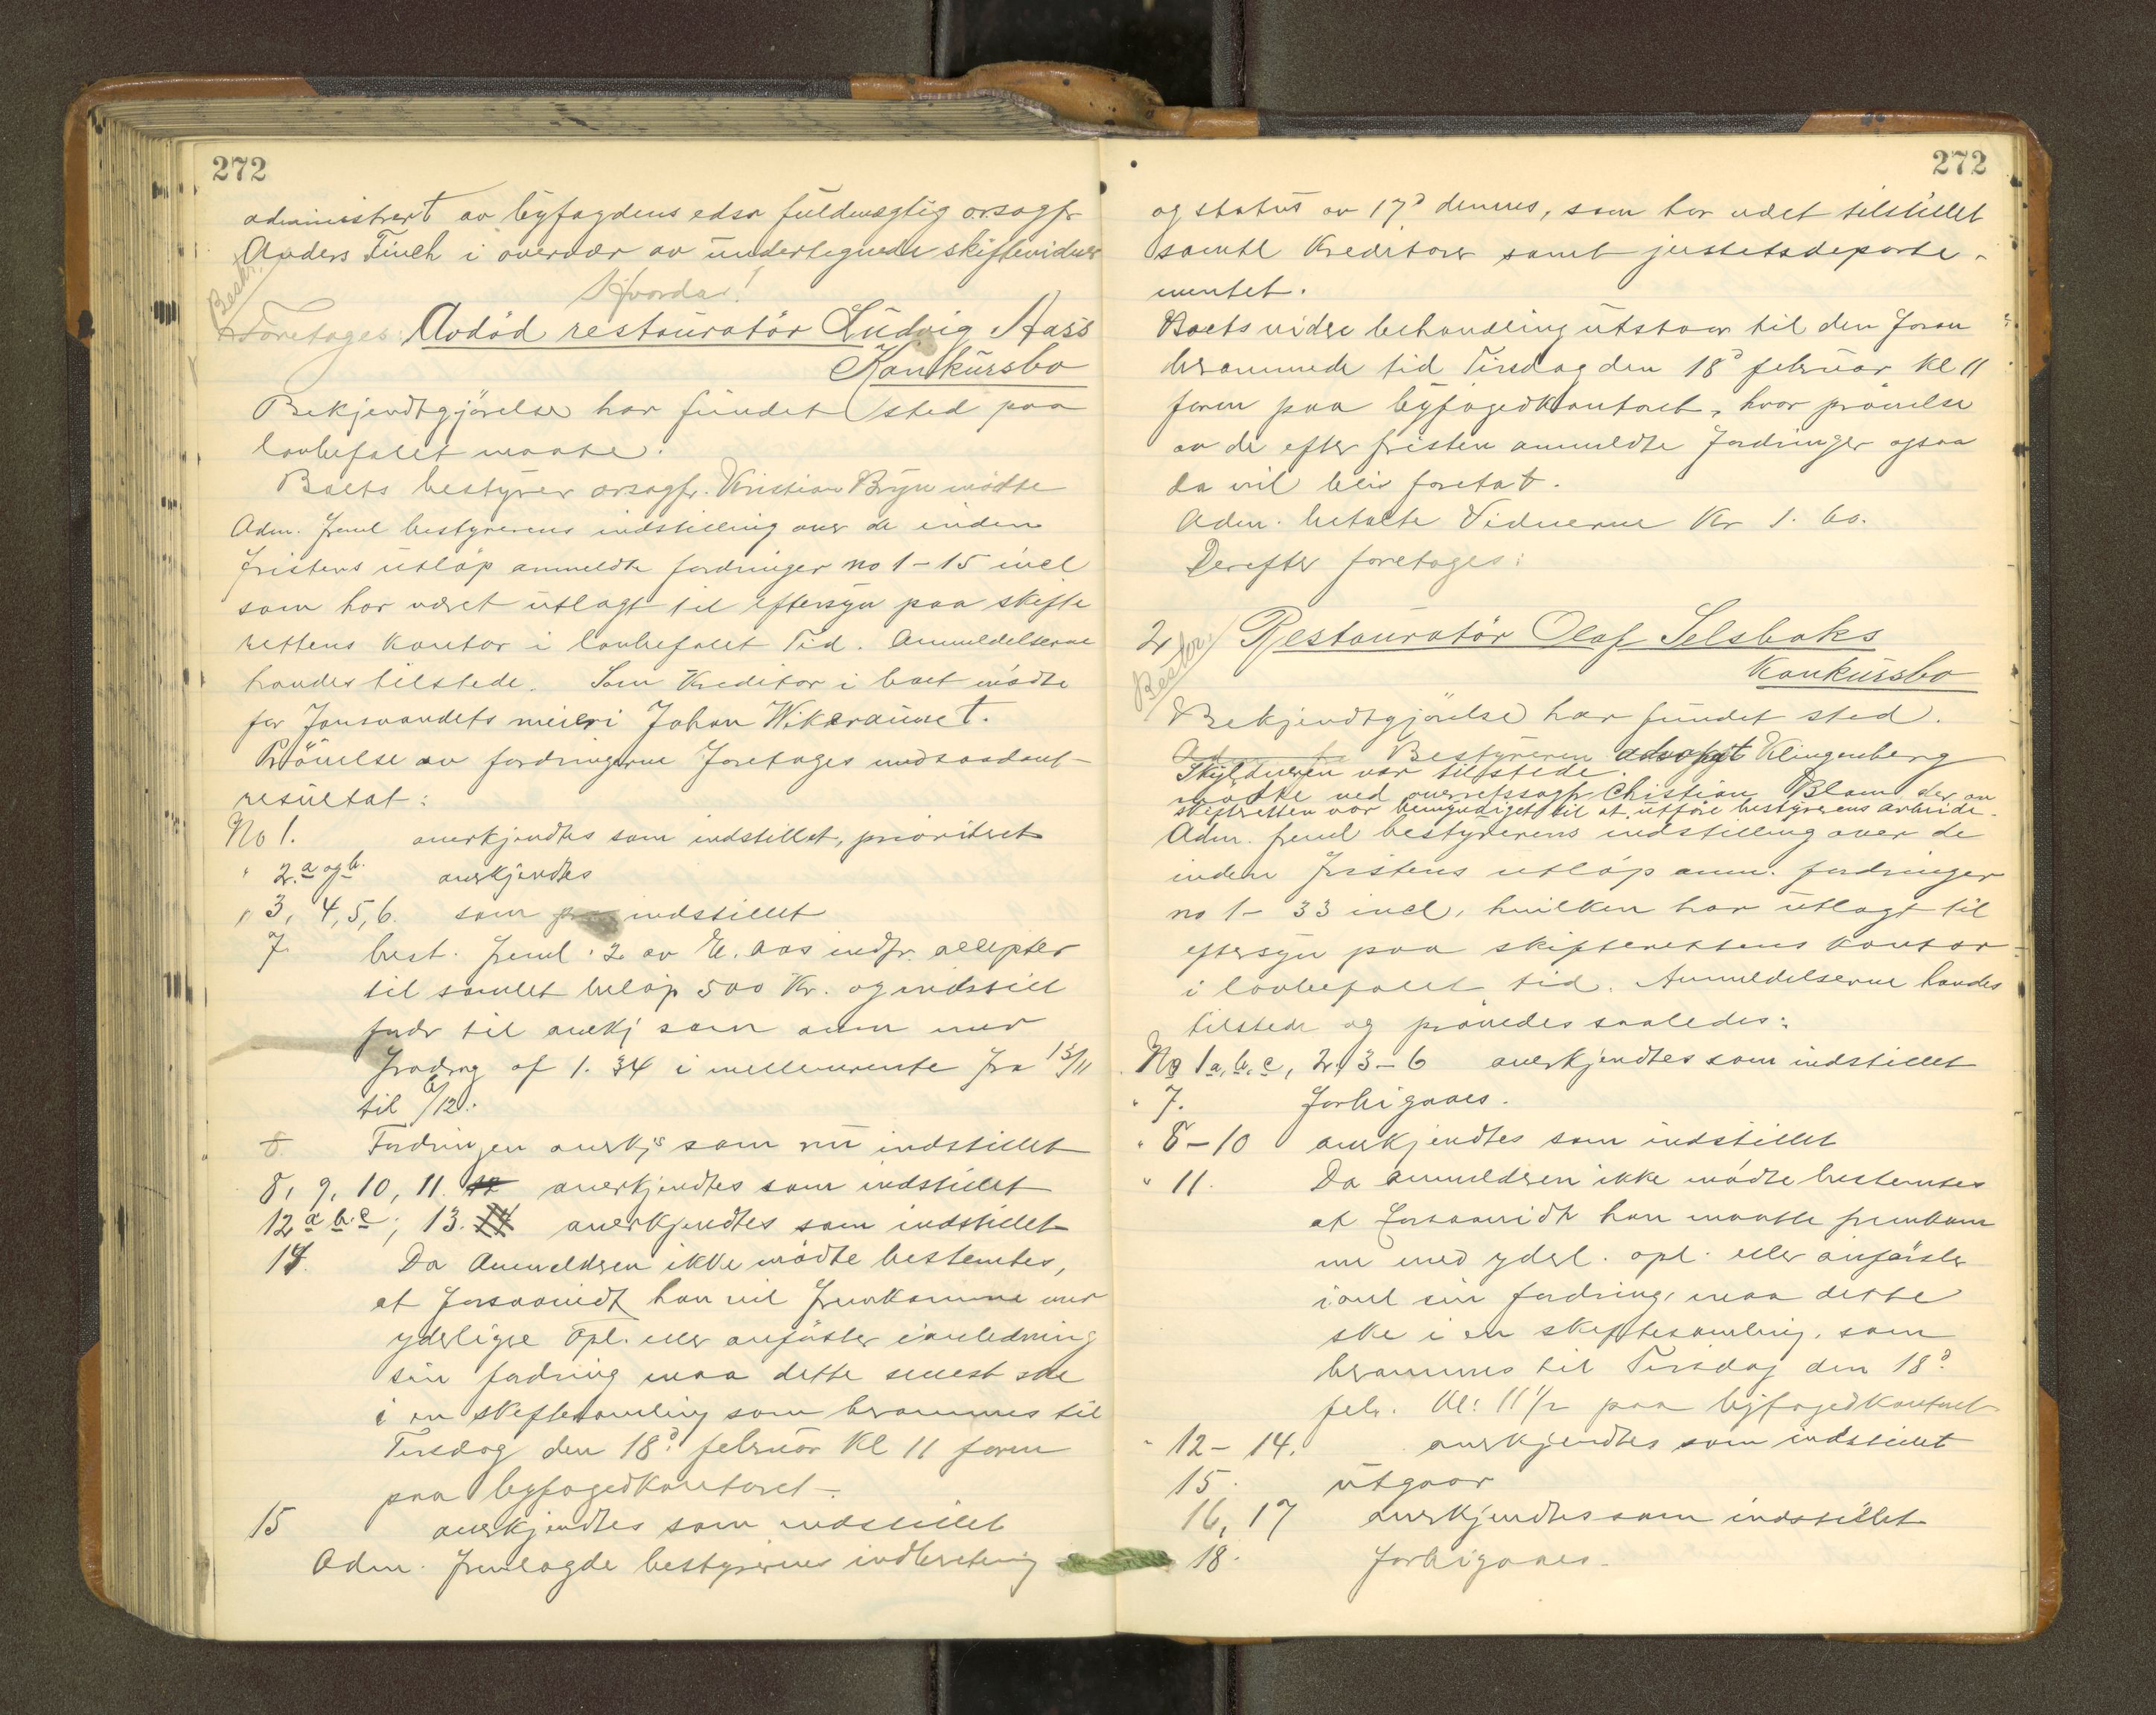 272
administrert av byfogdens edsv fuldmægtig orsagfr
Anders Finch i overvær av undertegnede skiftevidner
Hvorda!
Bestyr.
Foretages: Avdöd restauratör Ludvig Aass
Konkursbo
Bekjendtgjörelse har fundet sted paa
lovbefalet maate.
Boets bestyrer orsagfr. Kristian Bryn mödte
Adm. freml bestyrerens indstilling over de inden
fristens utlöp anmeldte fordringer no 1-15 incl
som har været utlagt til eftersyn paa skifte
rettens kontor i lovbefalet Tid. Anmeldelserne
havdes tilstede. Som Kreditor i boet mödte
for Jonsvandets meieri Johan Wikeraunet.
Prövelse av fordringerne foretages med saadant
resultat:
No 1. anerkjendtes som indstillet, prioriteret
" 2. a og b. anerkjendtes
" 3, 4, 5, 6. som indstillet
7. best. freml. 2 av E. Aas indfr. accepter
til samlet belöp 500 Kr. og indstill
fordr til anerkj som anm med
fradrag af 1.34 i mellemrente fra 13/11
til 6/12.
Fordringen anerkjs som nu indstillet
8, 9, 10, 11. 12 anerkjendtes som indstillet
12 a b c; 13. 14 anerkjendtes som indstillet
14. Da Anmelderen ikke mödte bestemtes,
at forsaavidt han vil fremkomme med
yderligere opl. eller anförsler i anledning
sin fordring maa dette senest ske
i en skiftesamling som berammes til
Tirsdag den 18d februar Kl 11 form
paa byfogedkontoret.
15 anerkjendtes som indstillet
Adm. fremlagde bestyrerens indberetning
272
og status av 17d dennes, som har været tilstillet
samtl Kreditorer samt justitsdeparte-
mentet.
Boets videre behandling utstaar til den foran
berammede tid Tirsdag den 18d februar Kl 11
form paa byfogedkontoret, hvor prövelse
av de efter fristen anmeldte fordringer ogsaa
da vil bliv foretat.
Adm. betalte Vidnerne Kr 1.60.
Derefter foretages:
2, Restauratör Olaf Selsbaks
Konkursbo
Bestyr.
Bekjendtgjörelse har fundet sted.
Bestyreren advokat Klingenberg
Skyldneren var tilstede.
mödte ved overretssagfr Christian Blom der av
skifteretten var bemyndiget til at utföre bestyrerens arbeide.
Adm. freml bestyrerens indstilling over de
inden fristens utlöp anm. fordringer
no 1-33 incl, hvilken har utlagt til
eftersyn paa skifterettens kontor
i lovbefalet tid. Anmeldelserne havdes
tilstede og prövedes saaledes:
No 1 a, b, c, 2, 3-6 anerkjendtes som indstillet
" 7. forbigaaes.
" 8-10 anerkjendtes som indstillet
" 11. Da anmelderen ikke mödte bestemtes
at forsaavidt han maatte fremkom
me med yderl. opl. eller anförsler
i anl sin fordring, maa dette
ske i en skiftesamling, som
berammes til Tirsdag den 18d
febr. Kl: 11 1/2 paa byfogedkontoret
" 12-14. anerkjendtes som indstillet
15. utgaar
16, 17 anerkjendtes som indstillet
18. forbigaaes.